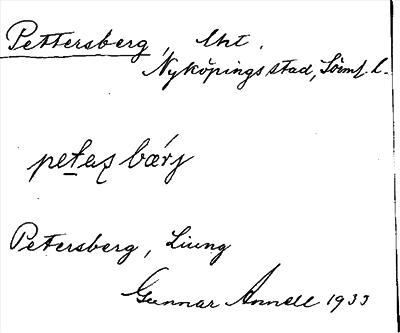 Pettersberg, lht.
Nyköpings stad, Sörml. l.
petaʂ bærj
Petersberg, Ljung
Gunnar Annell 1933